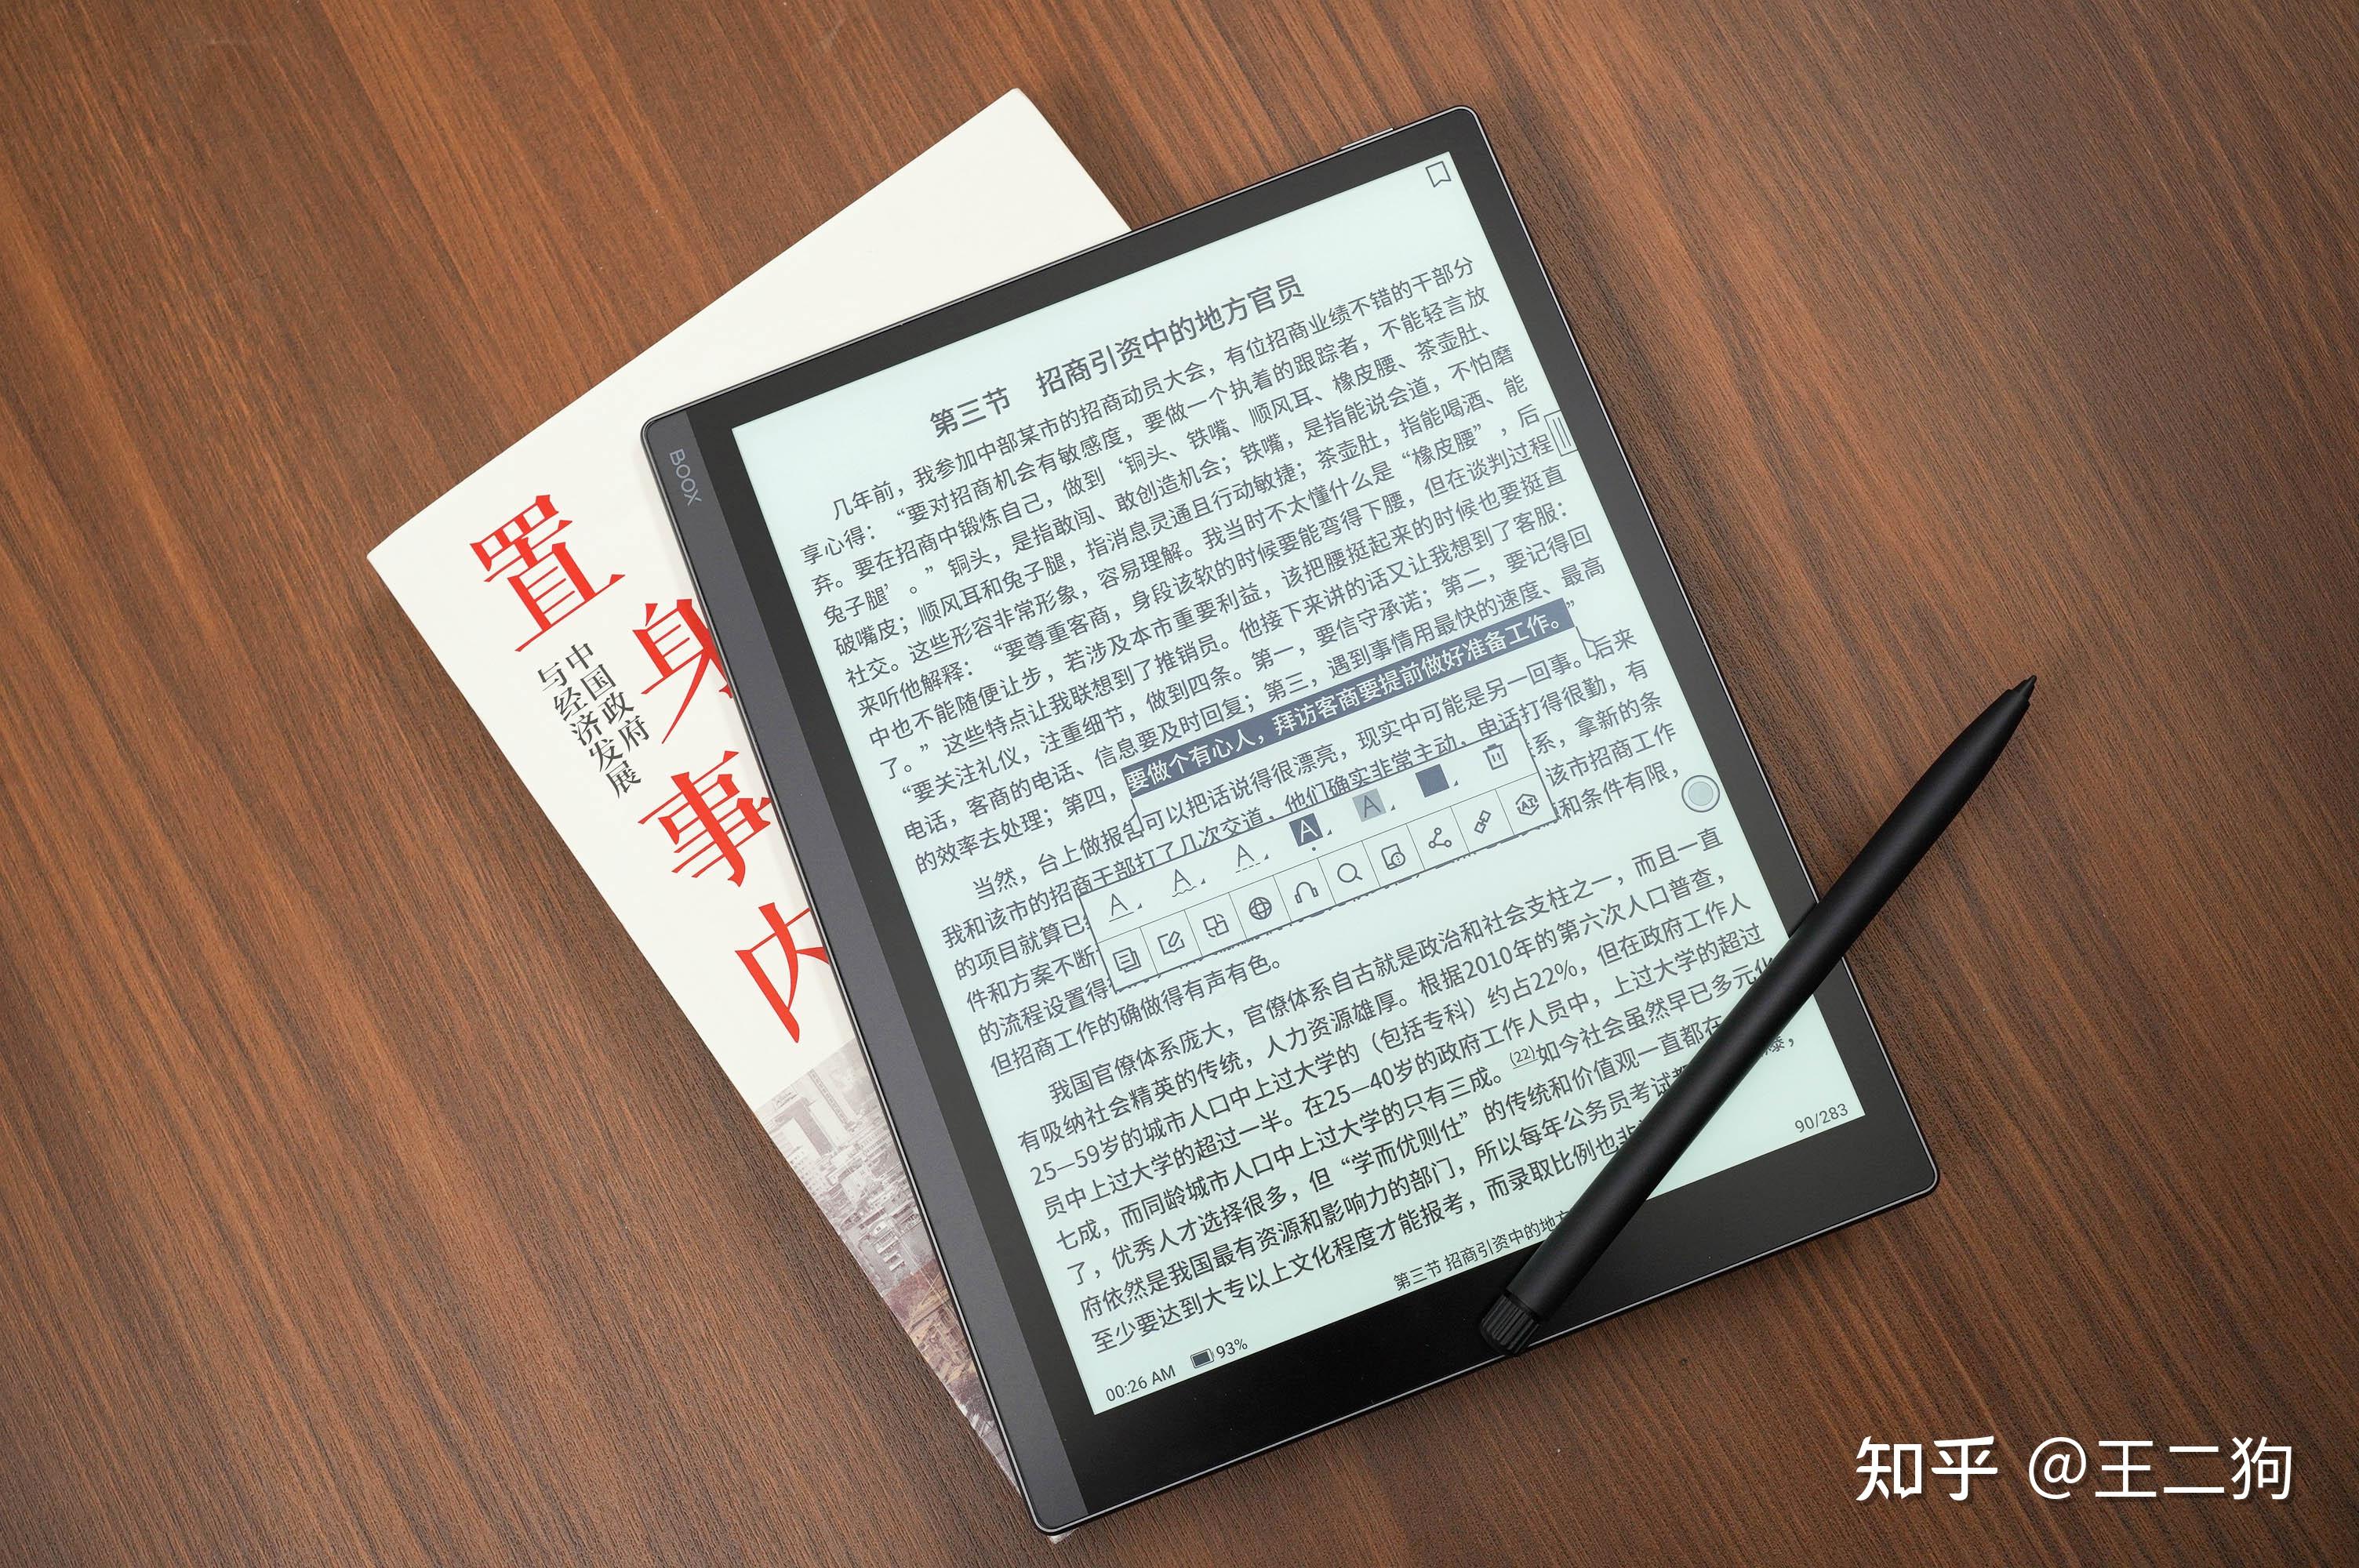 置
身
事
内
中国政府
与经济发展
BOOX
第三节 招商引资中的地方官员
几年前，我参加中部某市的招商动员大会，有位招商业绩不错的干部分
享心得：“要对招商机会有敏感度，要做一个执着的跟踪者，不能轻言放
弃。要在招商中锻炼自己，做到‘铜头、铁嘴、顺风耳、橡皮腰、茶壶肚、
兔子腿’。”铜头，是指敢闯、敢创造机会；铁嘴，是指能说会道，不怕磨
破嘴皮；顺风耳和兔子腿，指消息灵通且行动敏捷；茶壶肚，指能喝酒、能
社交。这些形容非常形象，容易理解。我当时不太懂什么是“橡皮腰”，后
来听他解释：“要尊重客商，身段该软的时候要能弯得下腰，但在谈判过程
中也不能随便让步，若涉及本市重要利益，该把腰挺起来的时候也要挺直
了。”这些特点让我联想到了推销员。他接下来讲的话又让我想到了客服：
“要关注礼仪，注重细节，做到四条。第一，要信守承诺；第二，要记得回
电话，客商的电话、信息要及时回复；第三，遇到事情用最快的速度、最高
的效率去处理；第四，要做个有心人，拜访客商要提前做好准备工作。”
当然，台上做报告可以把话说得很漂亮，现实中可能是另一回事。后来
我和该市的招商干部打了几次交道，他们确实非常主动，电话打得很勤，有
的项目就算已 系，拿新的条
件和方案不断 该市招商工作
的流程设置得 和条件有限，
但招商工作的确做得有声有色。
我国官僚体系庞大，官僚体系自古就是政治和社会支柱之一，而且一直
有吸纳社会精英的传统，人力资源雄厚。根据2010年的第六次人口普查，
25—59岁的城市人口中上过大学的（包括专科）约占22%，但在政府工作人
员中上过大学的超过一半。在25—40岁的政府工作人员中，上过大学的超过
七成，而同龄城市人口中上过大学的只有三成。(22)如今社会虽然早已多元化
了，优秀人才选择很多，但“学而优则仕”的传统和价值观一直都在，
府依然是我国最有资源和影响力的部门，所以每年公务员考试都
至少要达到大专以上文化程度才能报考，而录取比例也非
00:26 AM 93% 第三节 招商引资中的地方 90/283
知乎 @王二狗